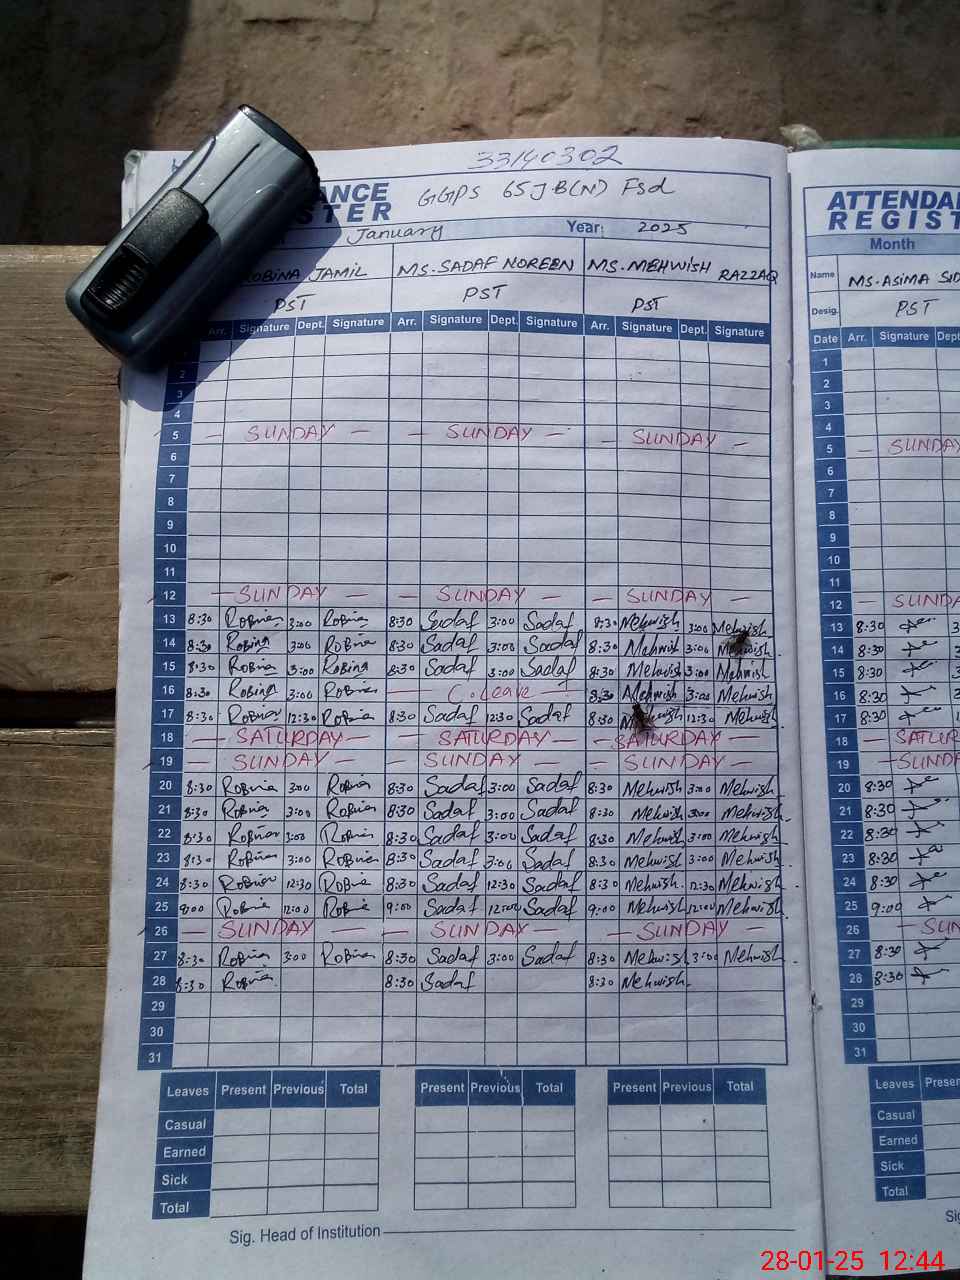 33140302
ANCE GGPS 65 J.B(N) Fsd
STER
January Year: 2025
ROBINA JAMIL MS. SADAF NOREEN MS. MEHWISH RAZZAQ
PST PST PST
Arr. Signature Dept. Signature Arr. Signature Dept. Signature Arr. Signature Dept. Signature
2
3
4
5 — SUNDAY — — SUNDAY — — SUNDAY —
6
7
8
9
10
11
12 — SUNDAY — — SUNDAY — — SUNDAY —
13 8:30 Robina 3:00 Robina 8:30 Sadaf 3:00 Sadaf 8:30 Mehwish 3:00 Mehwish
14 8:30 Robina 3:00 Robina 8:30 Sadaf 3:00 Sadaf 8:30 Mehwish 3:00 Mehwish
15 8:30 Robina 3:00 Robina 8:30 Sadaf 3:00 Sadaf 8:30 Mehwish 3:00 Mehwish
16 8:30 Robina 3:00 Robina — C. Leave — 8:30 Mehwish 3:00 Mehwish
17 8:30 Robina 12:30 Robina 8:30 Sadaf 12:30 Sadaf 8:30 Mehwish 12:30 Mehwish
18 — SATURDAY — — SATURDAY — — SATURDAY —
19 — SUNDAY — — SUNDAY — — SUNDAY —
20 8:30 Robina 3:00 Robina 8:30 Sadaf 3:00 Sadaf 8:30 Mehwish 3:00 Mehwish
21 8:30 Robina 3:00 Robina 8:30 Sadaf 3:00 Sadaf 8:30 Mehwish 3:00 Mehwish
22 8:30 Robina 3:00 Robina 8:30 Sadaf 3:00 Sadaf 8:30 Mehwish 3:00 Mehwish
23 8:30 Robina 3:00 Robina 8:30 Sadaf 3:00 Sadaf 8:30 Mehwish 3:00 Mehwish
24 8:30 Robina 12:30 Robina 8:30 Sadaf 12:30 Sadaf 8:30 Mehwish 12:30 Mehwish
25 9:00 Robina 12:00 Robina 9:00 Sadaf 12:00 Sadaf 9:00 Mehwish 12:00 Mehwish
26 — SUNDAY — — SUNDAY — — SUNDAY —
27 8:30 Robina 3:00 Robina 8:30 Sadaf 3:00 Sadaf 8:30 Mehwish 3:00 Mehwish
28 8:30 Robina 8:30 Sadaf 8:30 Mehwish
29
30
31
Leaves Present Previous Total Present Previous Total Present Previous Total
Casual
Earned
Sick
Total
Sig. Head of Institution
ATTENDA
REGIST
Month
Name MS. ASIMA SID
Desig. PST
Date Arr. Signature Dept
1
2
3
4
5 — SUNDAY
6
7
8
9
10
11
12 — SUNDA
13 8:30
14 8:30
15 8:30
16 8:30
17 8:30
18 — SATUR
19 — SUNDA
20 8:30
21 8:30
22 8:30
23 8:30
24 8:30
25 9:00
26 — SUN
27 8:30
28 8:30
29
30
31
Leaves Presen
Casual
Earned
Sick
Total
Sig
28-01-25 12:44